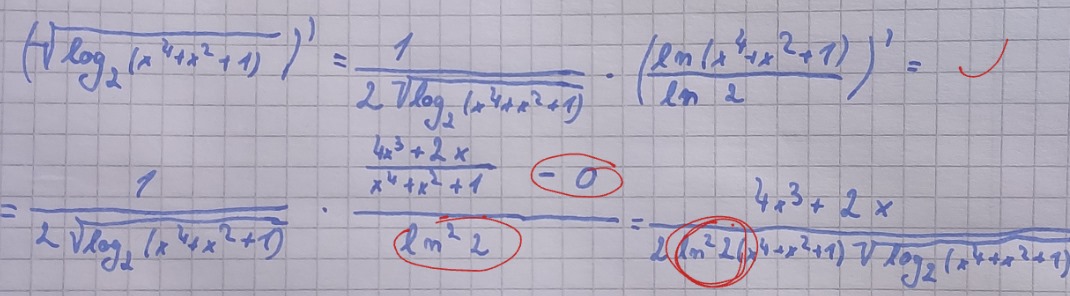 (√(log₂(x⁴+x²+1)))' = 1/(2√(log₂(x⁴+x²+1))) · (ln(x⁴+x²+1)/ln 2)' = ✓
= 1/(2√(log₂(x⁴+x²+1))) · ((4x³+2x)/(x⁴+x²+1) - 0)/(ln² 2) = (4x³+2x)/(2 ln² 2 (x⁴+x²+1) √(log₂(x⁴+x²+1)))